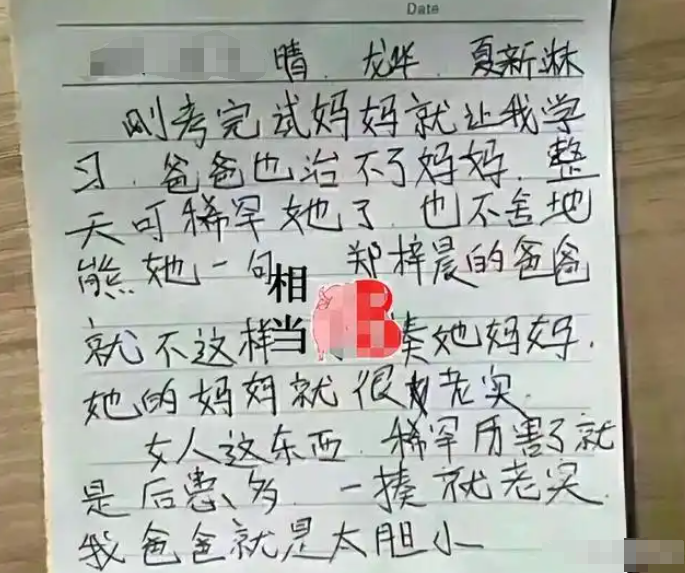 Date
晴. 龙华. 夏新淋
刚考完试妈妈就让我学
习.爸爸也治不了妈妈.整
天可稀罕她了.也不舍地
熊她一句 郑梓晨的爸爸
就不这样 揍她妈妈.
她的妈妈就很老实
女人这东西.稀罕厉害了就
是后患多.一揍就老实
我爸爸就是太胆小
相当